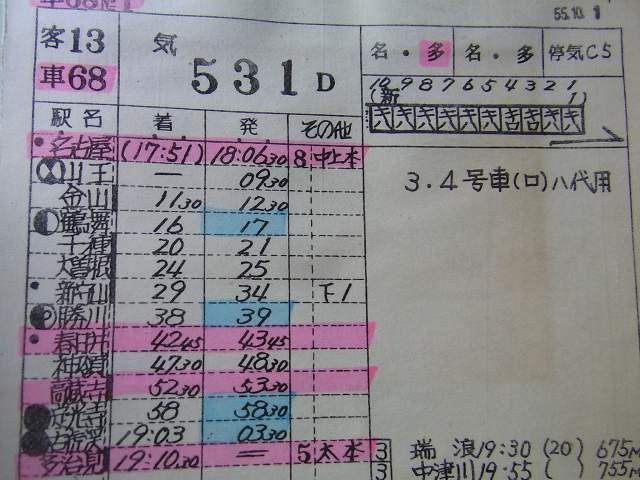 車68
55.10.1
客13
車68
気
531D
名・多
名・多
停気C5
10 9 8 7 6 5 4 3 2 1
(新
1)
キ キ キ キ キ キ
3.4号車(ロ)ハ代用
駅名 着 発 その他
名古屋 (17:51) 18:06 30 8 中上本
山王 — 09 30
金山 11 30 12 30
鶴舞 16 17
千種 20 21
大曽根 24 25
新守山 29 34 下1
勝川 38 39
春日井 42 45 43 45
神領 47 30 48 30
高蔵寺 52 30 53 30
定光寺 58 58 30
古虎渓 19:03 03 30
多治見 19:10 30 = 5 太本
3 瑞浪 19:30 (20) 675M
3 中津川 19:55 ( ) 755M